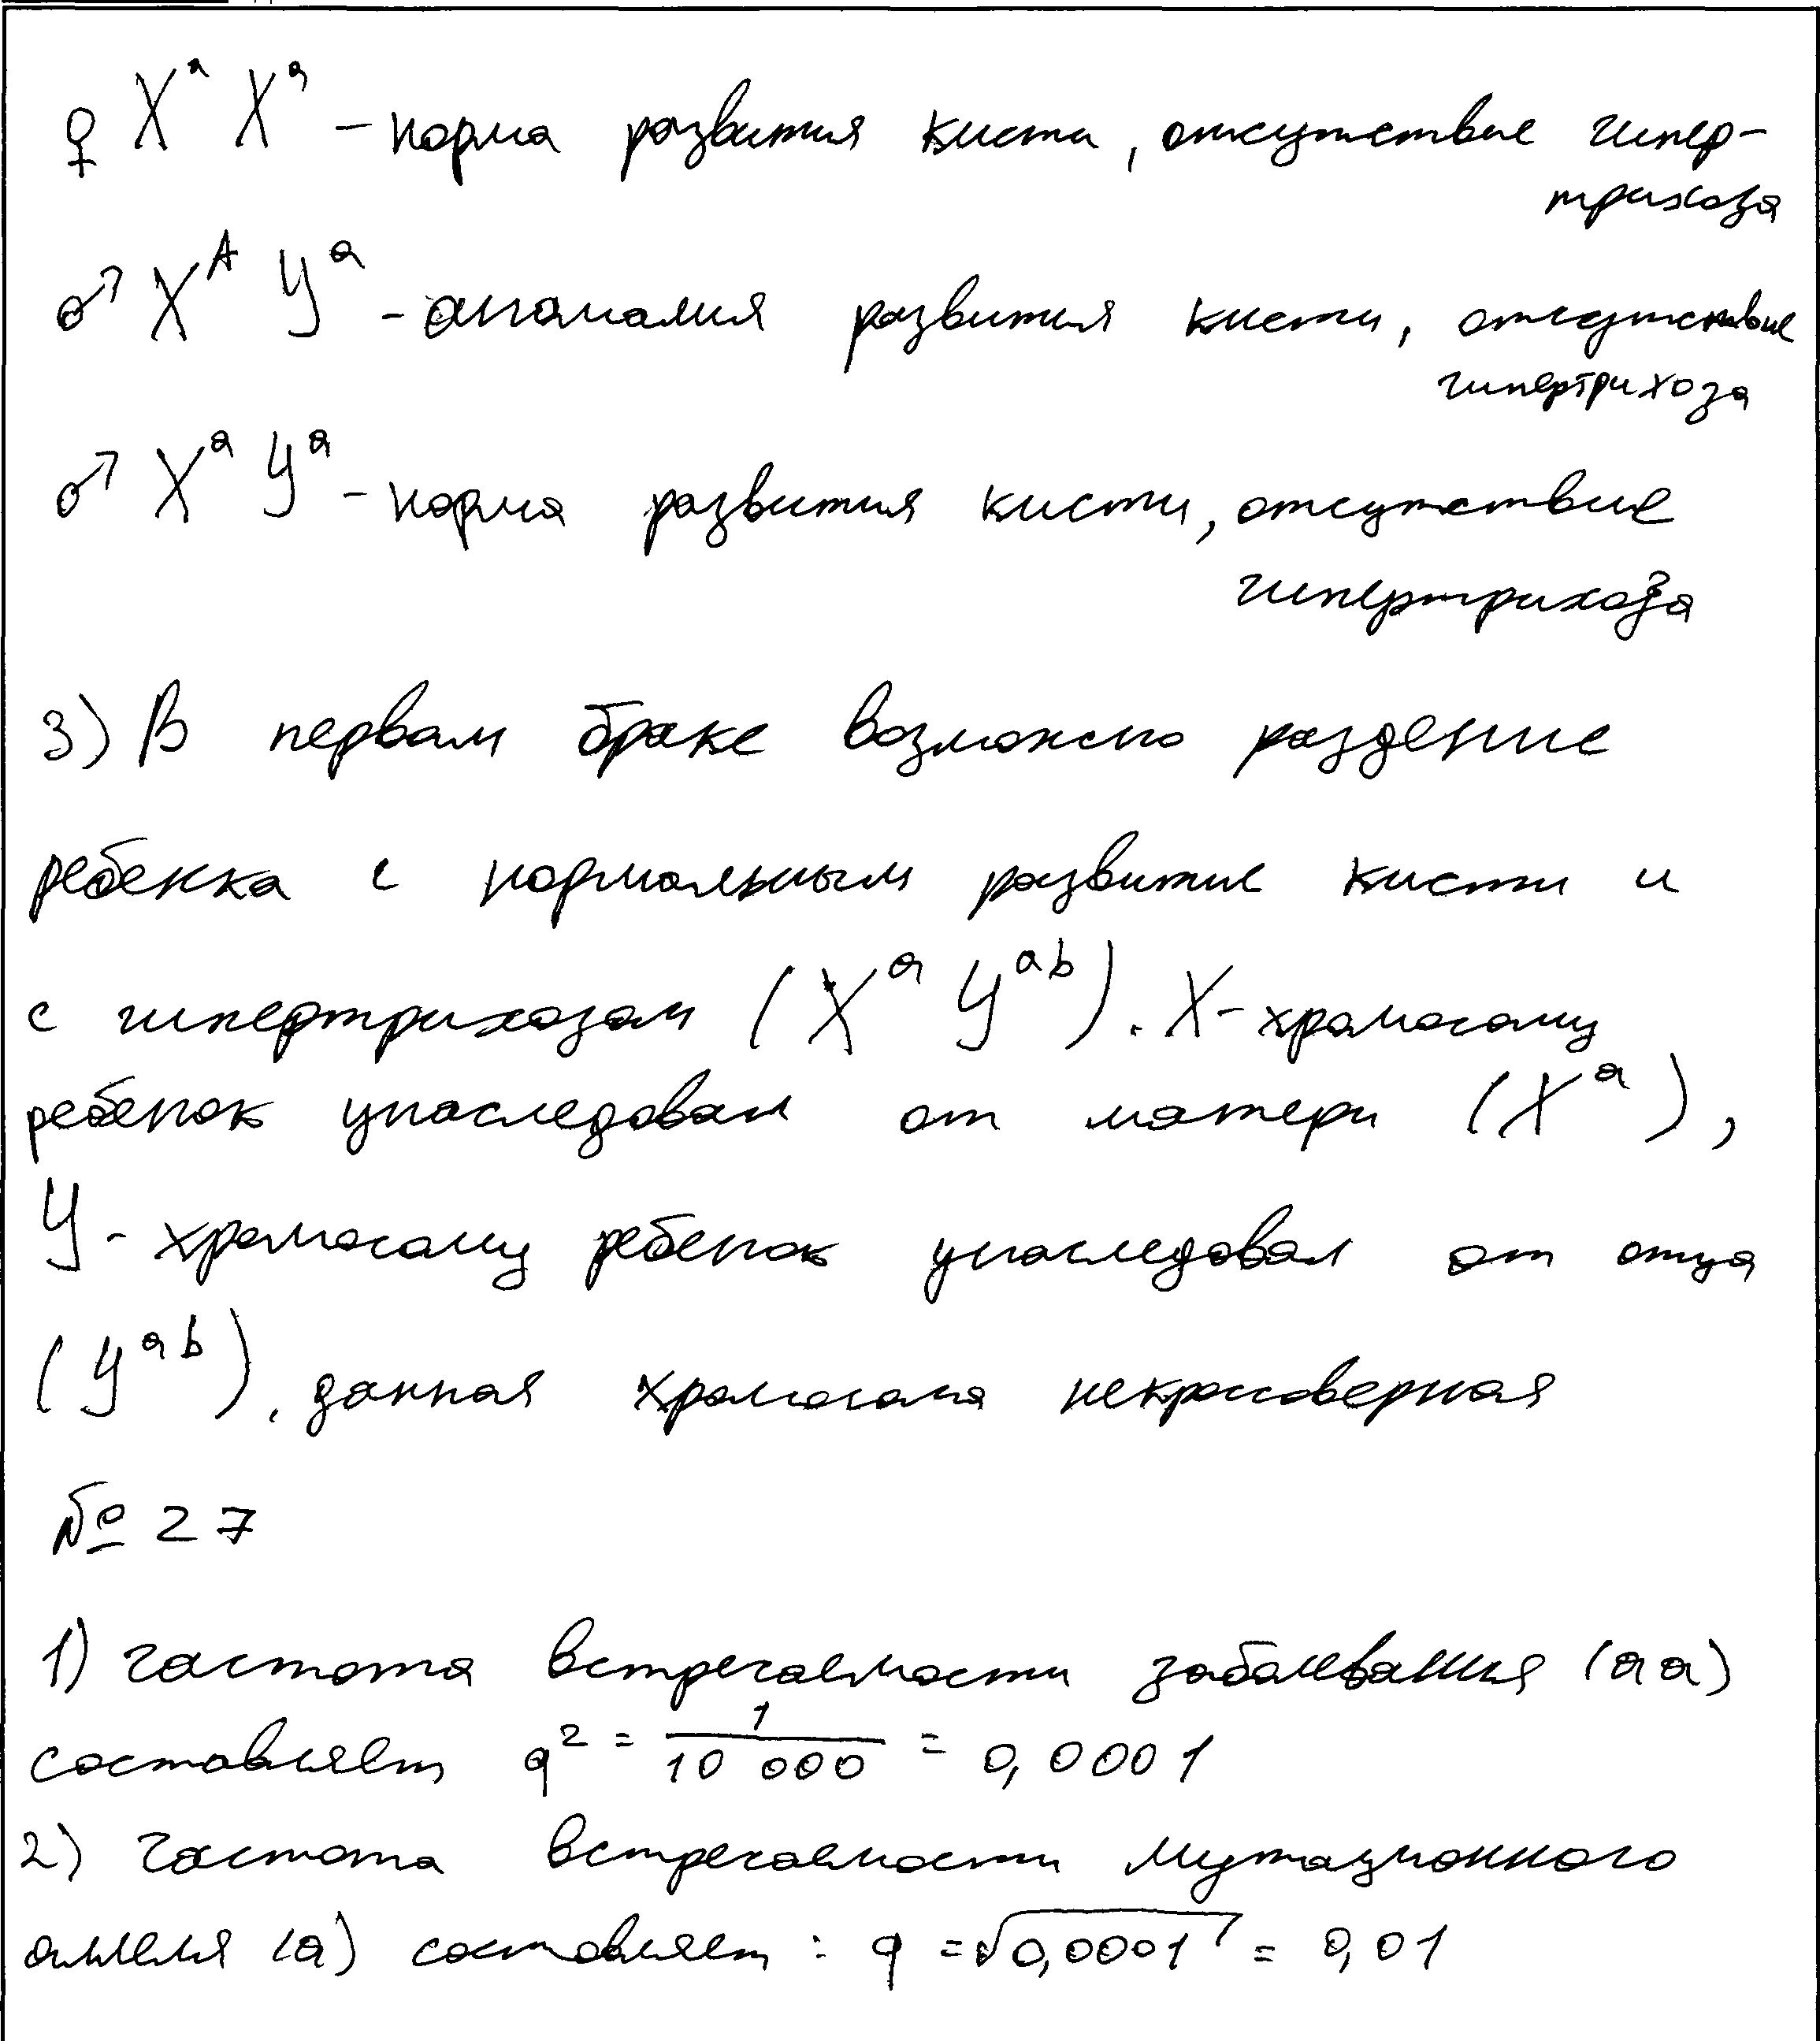 ♀ XᵃXᵃ - норма развития кисти, отсутствие гипер-
трихоза
♂ XᴬYᵃ - аномалия развития кисти, отсутствие
гипертрихоза
♂ XᵃYᵃ - норма развития кисти, отсутствие
гипертрихоза
3) В первом браке возможно рождение
ребенка с нормальным развитие кисти и
с гипертрихозом (XᵃYᵃᵇ). X-хромосому
ребенок унаследовал от матери (Xᵃ),
Y-хромосому ребенок унаследовал от отца
(Yᵃᵇ), данная хромосома некроссоверная
№ 27
1) частота встречаемости заболевания (aa)
составляет q² = 1/10 000 = 0,0001
2) частота встречаемости мутационного
аллеля (a) составляет: q = √0,0001 = 0,01